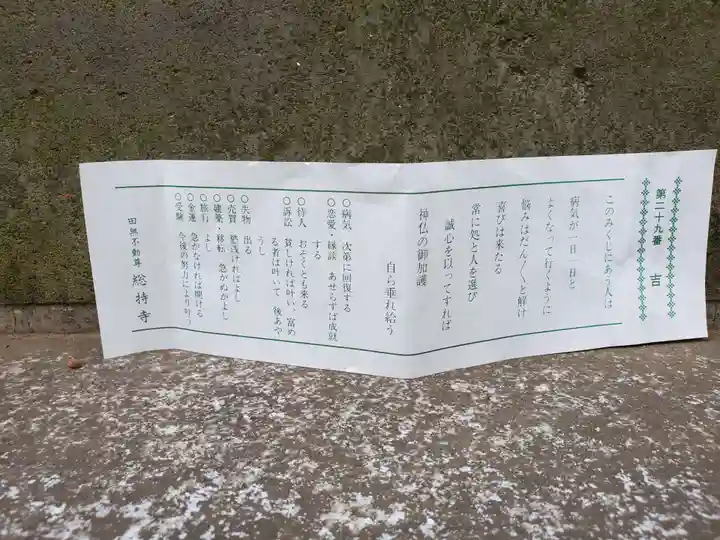 第二十九番 吉
このみくじにあう人は
病気が一日一日と
よくなって行くように
悩みはだん／＼と解け
喜びは来たる
常に処と人を選び
誠心を以ってすれば
神仏の御加護
自ら垂れ給う
○病気 次第に回復する
○恋愛・縁談 あせらずば成就
する
○待人 おそくとも来る
○訴訟 貧しければ叶い、富め
る者は叶いて 後あや
うし
○失物 出る
○売買 慾浅ければよし
○建築・移転 急がぬがよし
○旅行 よし
○金運 急がなければ開ける
○受験 今後の努力により叶う
田無不動尊 総持寺